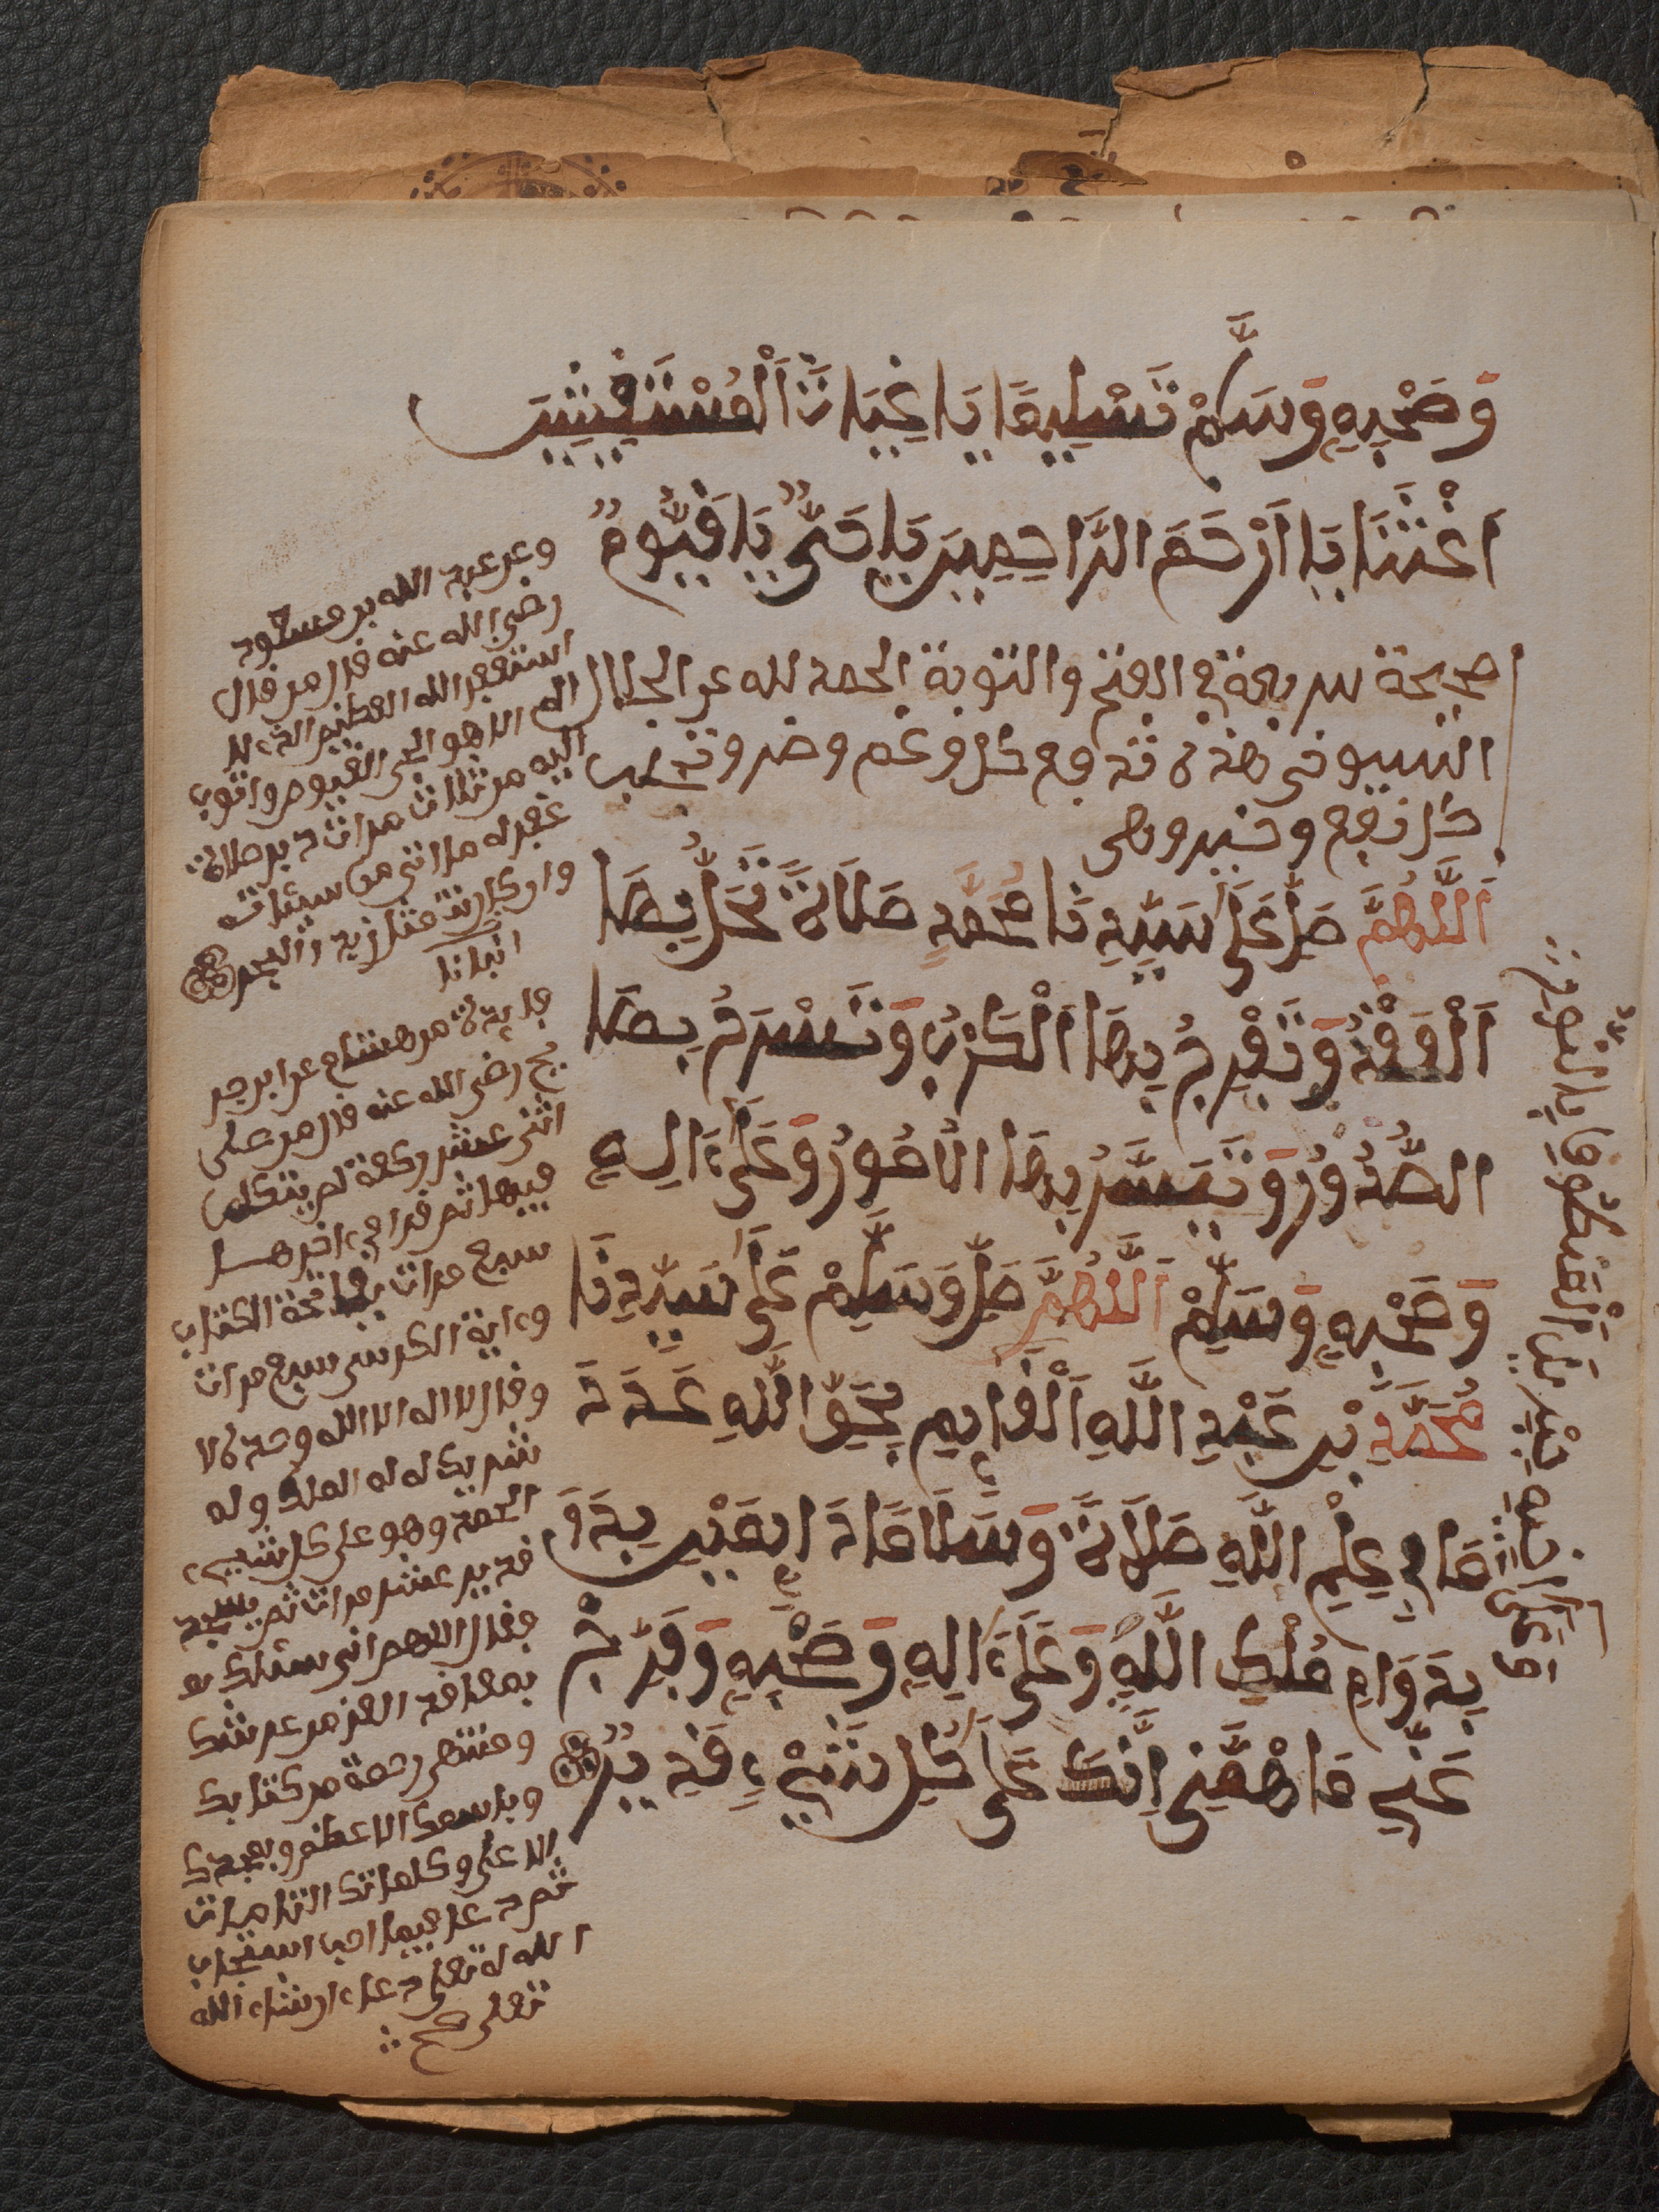 وَصَحْبِهِ وَسَلِّمْ تَسْلِيمًا يَا غِيَاثَ اَلْمُسْتَغِيثِينَ
اَغِثْنَا يَا اَرْحَمَ الرَّاحِمِينَ يَا حَيُّ يَا قَيُّومُ
صحيحة سريعة في الفتح والتوبة الحمد لله عن الجلال
السيوفى هذه تدفع كل وغم وضر وتجلب
كل نفع وخير وهى
اَللَّهُمَّ صَلِّ عَلَى سَيِّدِنَا مُحَمَّدٍ صَلَاةً تَحُلُّ بِهَا
اَلْعُقَدُ وَتُفْرِجُ بِهَا اَلْكَرْبُ وَتَشْرَحُ بِهَا
الصُّدُورُ وَتَيَسَّرُ بِهَا الْأُمُورُ وَعَلَى ءَالِهِ
وَصَحْبِهِ وَسَلِّمْ اَللَّهُمَّ صَلِّ وَسَلِّمْ عَلَى سَيِّدِنَا
مُحَمَّدِ بْنِ عَبْدِ اللَّهِ اَلْقَايِمِ بِحَقِّ اللَّهِ عَدَدَ
مَا فِي عِلْمِ اللَّهِ صَلَاةً وَسَلَامًا دَايِمَيْنِ بِدَوَ
بِدَوَامِ مُلْكِ اللَّهِ وَعَلَى ءَالِهِ وَصَحْبِهِ وَفَرِّجْ
عَنِّي مَا هَمَّنِي إِنَّكَ عَلَى كُلِّ شَيْءٍ قَدِيرٌ
وعن عبد الله بن مسعود
رضي الله عنه قال من قال
استغفر الله العظيم الذي لا
اله الا هو الحي القيوم واتوب
اليه من ثلاث مرات دبر صلاة
غفر له ما اتى من سيئاته
وان كانت مثل زبد البحر
انبانا
فايدة من هشام عن ابن جر
يج رضي الله عنه قال من صلى
اثنى عشر ركعة لم يتكلم
فيها ثم قرا في ءاخرها
سبع مرات بفاتحة الكتاب
وءاية الكرسي سبع مرات
وقال لا اله الا الله وحده لا
شريك له له الملك وله
الحمد وهو على كل شيء
قدير عشر مرات ثم يسجد
فقال اللهم انى سئلك بم
بمعاقد العز من عرشك
ومنتهى رحمة من كتابك
وباسمك الاعظم وبمجدك
الاعلى وكلماتك التامات
ثم دعا فيما احب استجاب
الله له تعلى دعاء ان شاء الله
تعلى صح